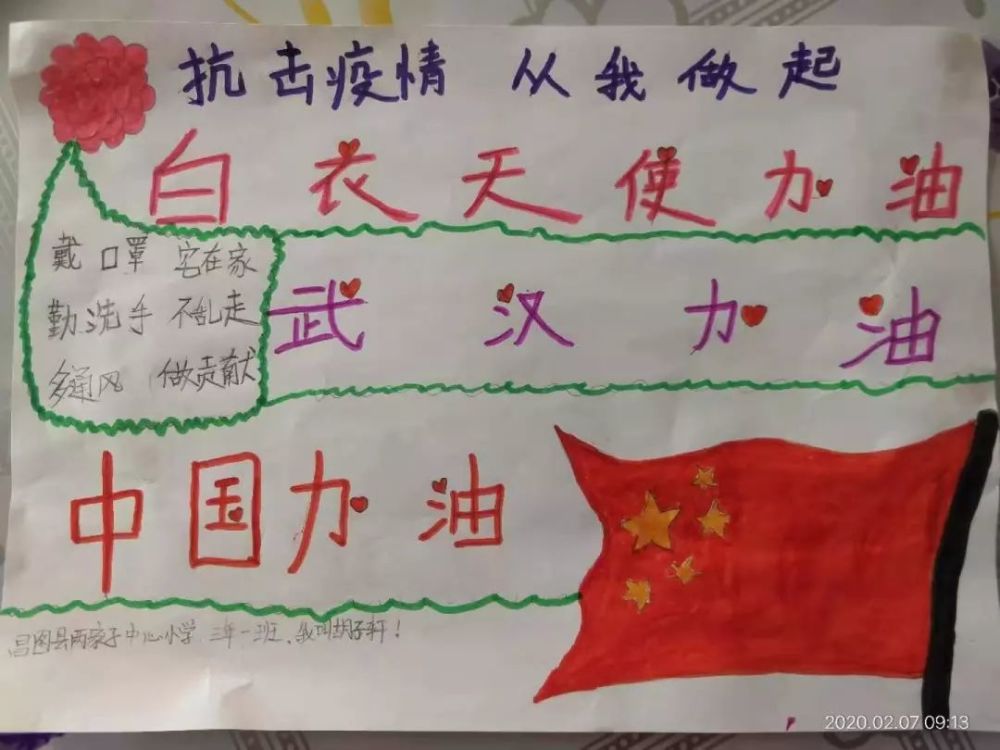 抗击疫情 从我做起
白衣天使加油
戴口罩 宅在家
勤洗手 不乱走
多通风 做贡献
武汉加油
中国加油
昌图县两家子中心小学 三年一班、我叫胡子轩！
2020.02.07 09:13